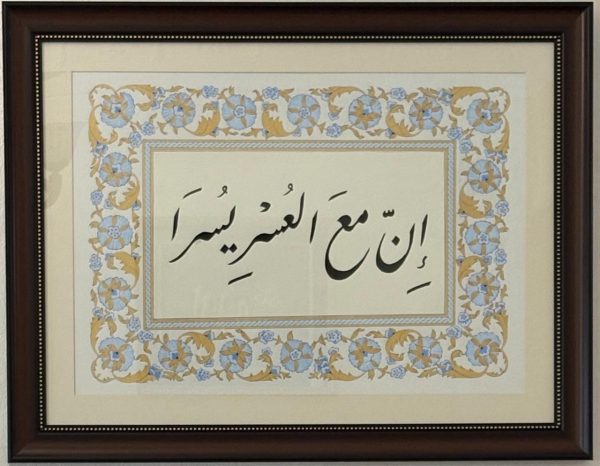 إِنّ مَعَ العُسْرِ يُسرَا